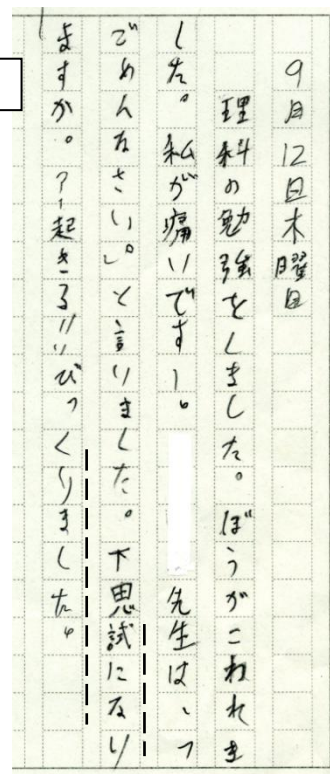 9月12日木曜日
理科の勉強をしました。ぼうがこわれま
した。私が痛いですー。先生は、「
ごめんなさい。」と言いました。不思試になり
ますか。アー起きるリリびっくりました。